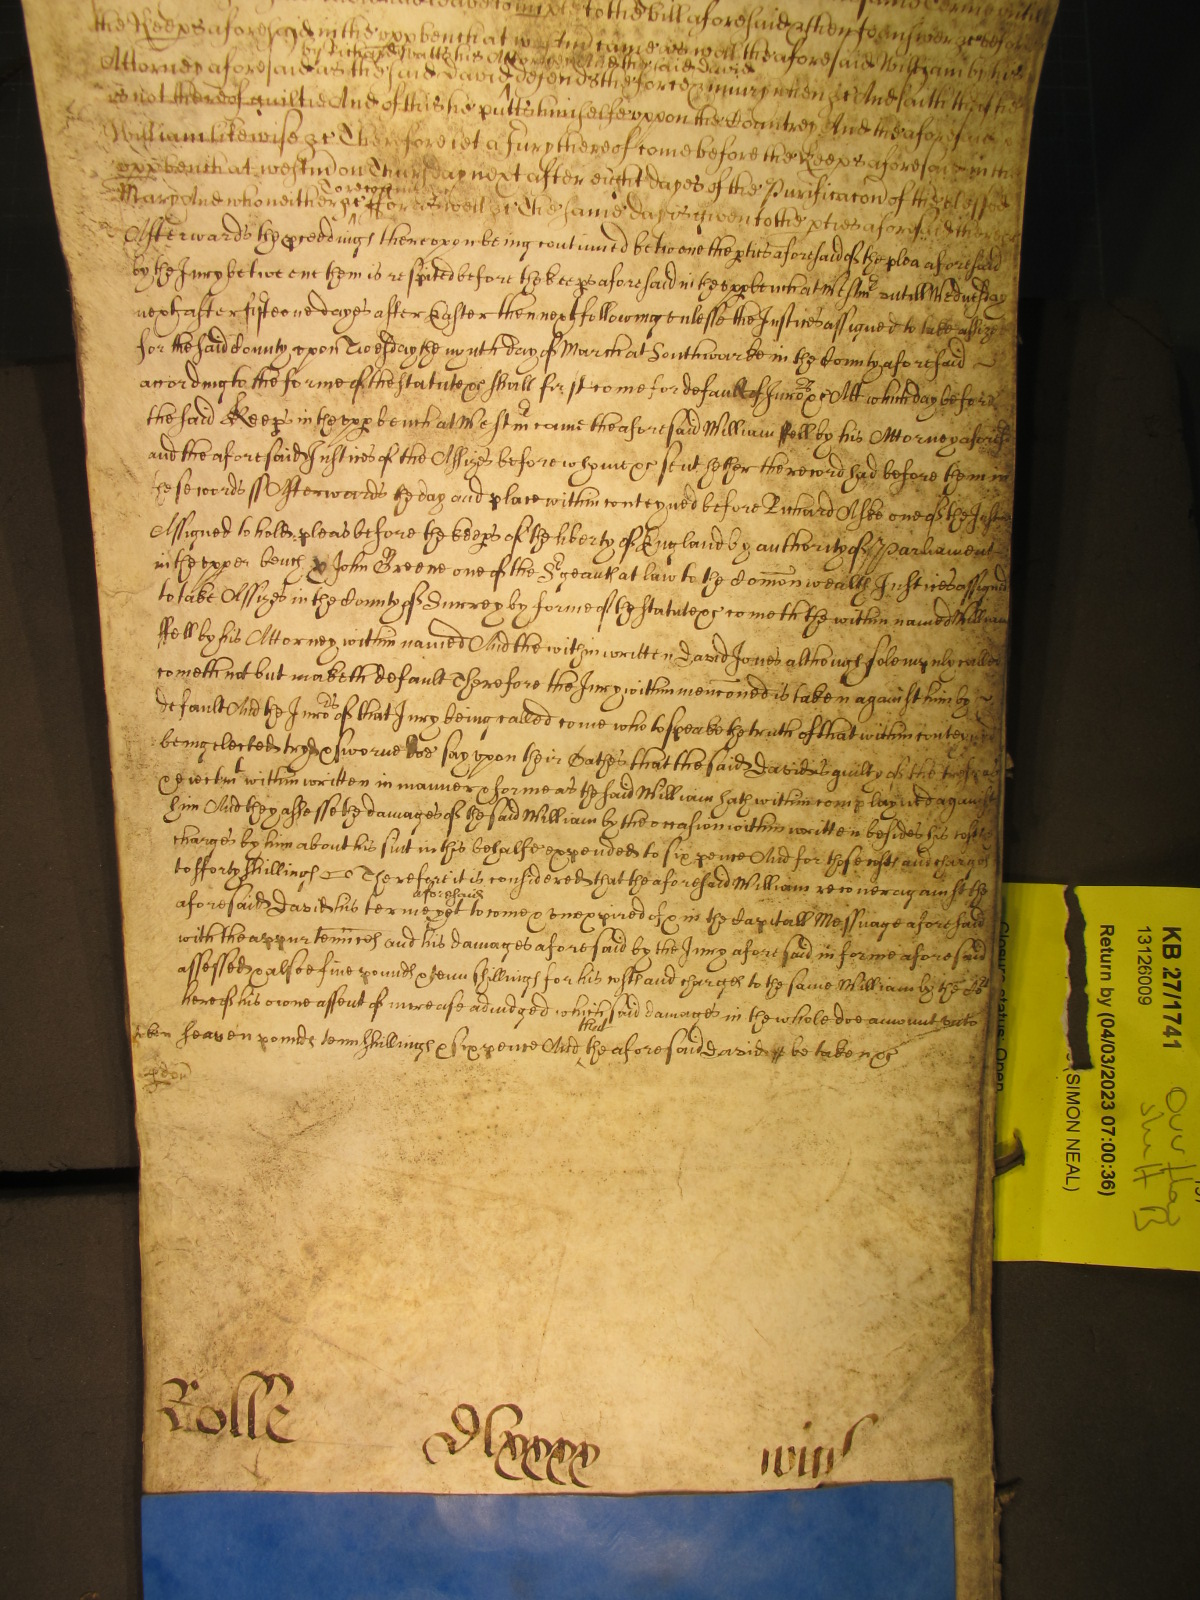 to the bill aforesaid
the Keeps aforesaid in the vpp bench at westm came as well the aforesaid William by his
by Richard Watts his Attorney And the said David
Attorney aforesaid as the said David defends the force & iniury when &c And saith that he
is not thereof guiltie And of this he putts himselfe vppon the Countrey And the aforesaid
William likewise &c Therefore let a Jury thereof come before the Keeps aforesaid in the
vpp bench at westm on Thursday next after eight dayes of the Purificacon of the blessed
To recognize &c
Mary And who neither &c fforasmuch &c The same day is given to the pties aforesaid there &c
Afterwards the pceedings therevpon being continued betweene the pties aforesaid of the plea aforesaid
by the Jury betweene them is respited before the keeps aforesaid in the vpp bench at Westm vntill Wednesday
next after fifteene dayes after Easter then next following vnlesse the Justices assigned to take assizes
for the said County vpon Twesday the nynth day of March at Southwarke in the County aforesaid
according to the forme of the statute &c shall first come for default of Juro &c Att which day before
the said Keeps in the vpp bench at Westm came the aforesaid William ffell by his Attorney aforesd
and the aforesaid Justices of the Assizes before whome &c sent hither the record had before them in
these words ss Afterwards the day and place within conteyned before Richard Aske one of the Justices
Assigned to hold pleas before the keeps of the liberty of England by authority of Parliament
in the vpper bench & John Greene one of the Sgeants at law to the Comonwealth Justices assigned
to take Assizes in the County of Surrey by forme of the statute &c cometh the within named William
ffell by his Attorney within named And the within written David Jones although solemnly called
cometh not but maketh default Therefore the Jury within menconed is taken against him by
default And the Juros of that Jury being called come who to speake the truth of that within conteyned
being elected tryed & sworne doe say vpon their Oathes that the said David is guilty of the trespas
& eiectmt within written in manner & forme as the said William hath within complayned against
him And they assesse the damages of the said William by the occasion within written besides his costs &
charges by him about his suit in this behalfe expended to six pence And for those costs and charges
to fforty shillings Therefore it is considered that the aforesaid William recouer against the
aforesaid
aforesaid David his terme yet to come & vnexpired of & in the Capitall Messuage aforesaid
with the appurtenncs and his damages aforesaid by the Jury aforesaid in forme aforesaid
assessed & alsoe five pounds & tenn shillings for his costs and charges to the same William by the Ct
here of his owne assent of increase adiudged which said damages in the whole doe amount vnto
that
seaven pounds tenn shillings & six pence And the aforesaid David be taken &c
Rolle
Dlxxxx
KB 27/1741
13126009
Return by (04/03/2023 07:00:36)
(SIMON NEAL)
Closure status: Open